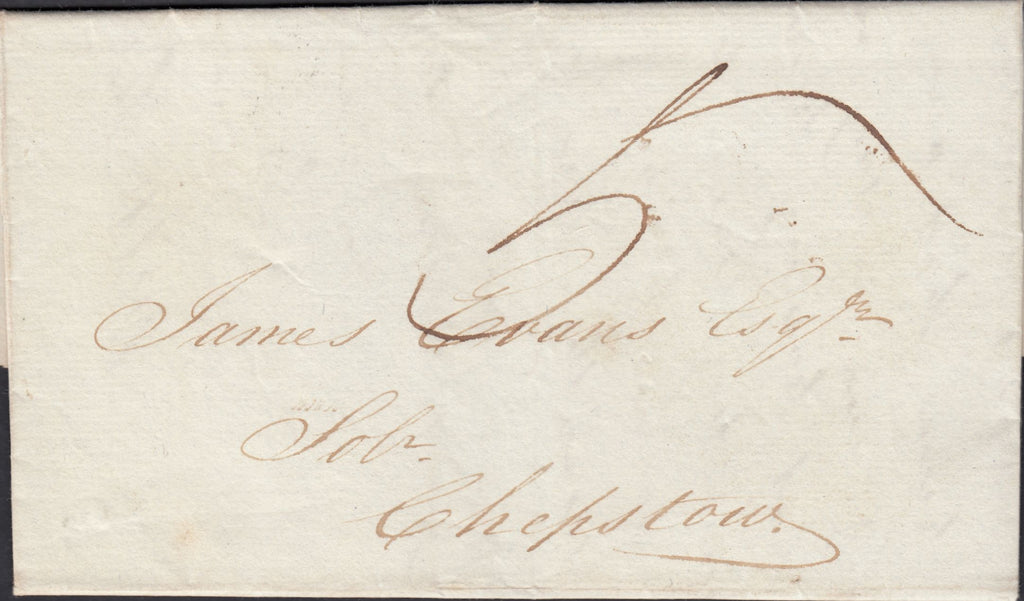 5
James Evans Esqr.
Solr.
Chepstow.